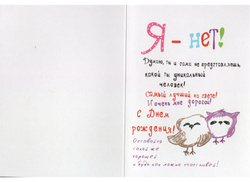 Я - нет!
Думаю, ты и сама не представляешь,
какой ты уникальный
человек!
Самый лучший на свете!
И очень мне дорогой!
С Днем
рождения!
Оставайся
такой же
хорошей
и будь как можно счастливей!